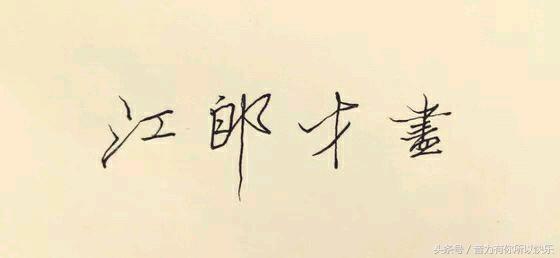 江郎才盡
头条号 / 有你所以快乐